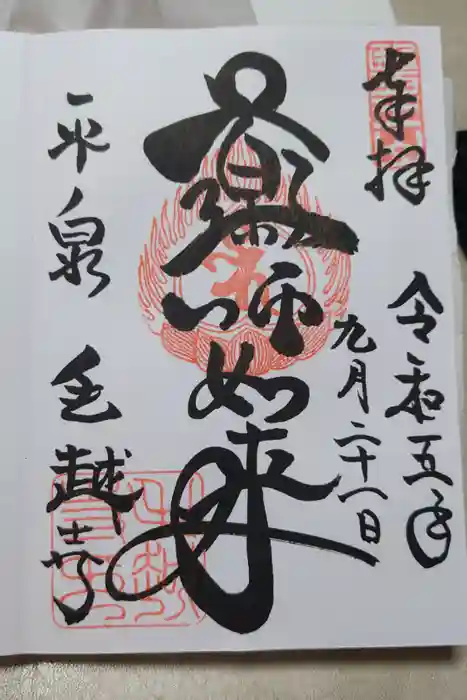 奉拝
令和五年
九月二十一日
薬師如来
平泉 毛越寺